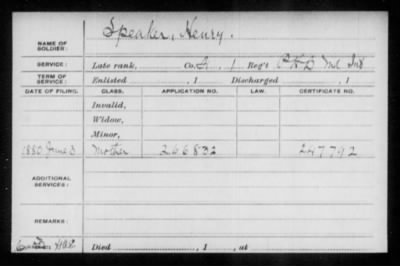 Speaker, Henry.
NAME OF SOLDIER:
SERVICE: Late rank, Co. A, 1 Reg't P.H.B. Md. Inf
TERM OF SERVICE: Enlisted , 1 Discharged , 1
DATE OF FILING. CLASS. APPLICATION NO. LAW. CERTIFICATE NO.
Invalid,
Widow,
Minor,
1880 June 3 Mother 266832 247792
ADDITIONAL SERVICES:
REMARKS:
Died , 1 , at